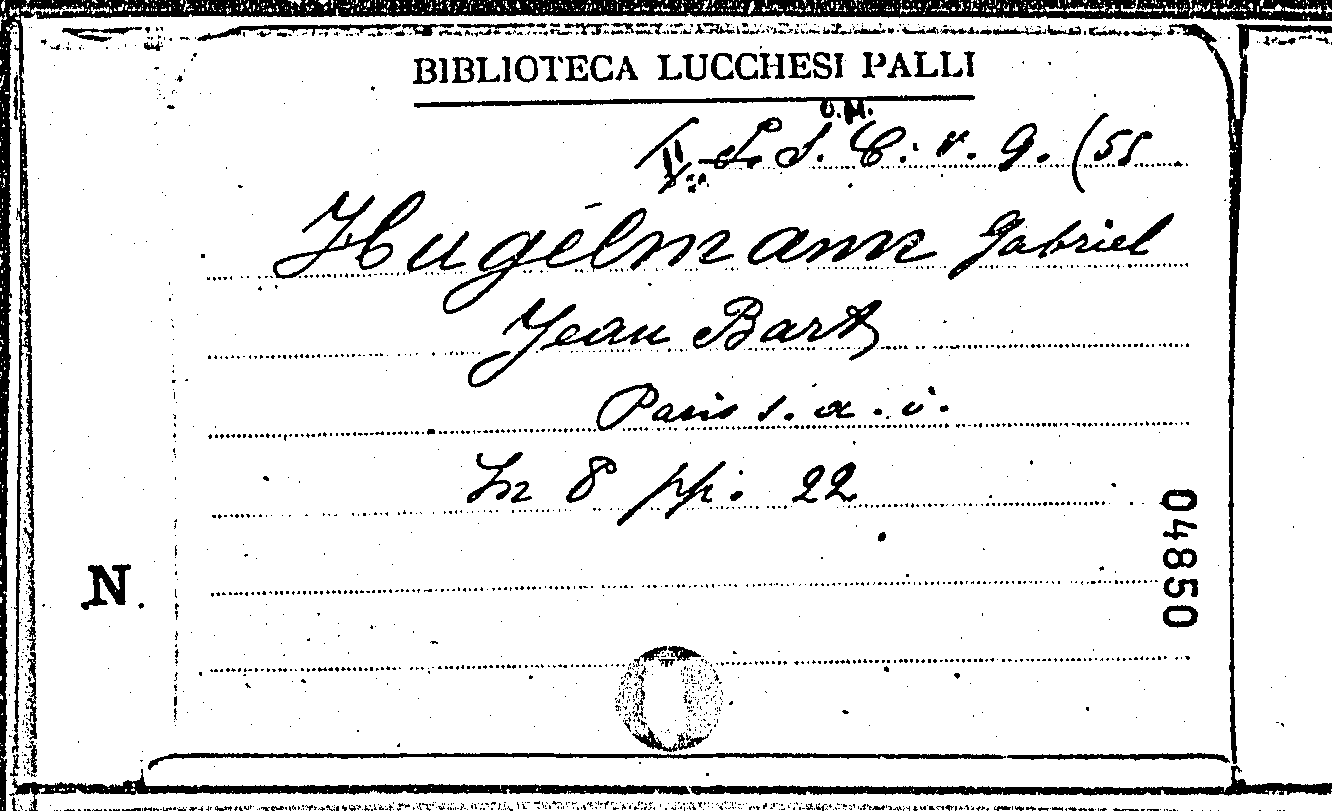 BIBLIOTECA LUCCHESI PALLI
O.M.
L. S. C. v. 9. (55
Hugelmann Gabriel
Jean Bart
Paris s. a. i.
In 8 pp. 22
04850
N.